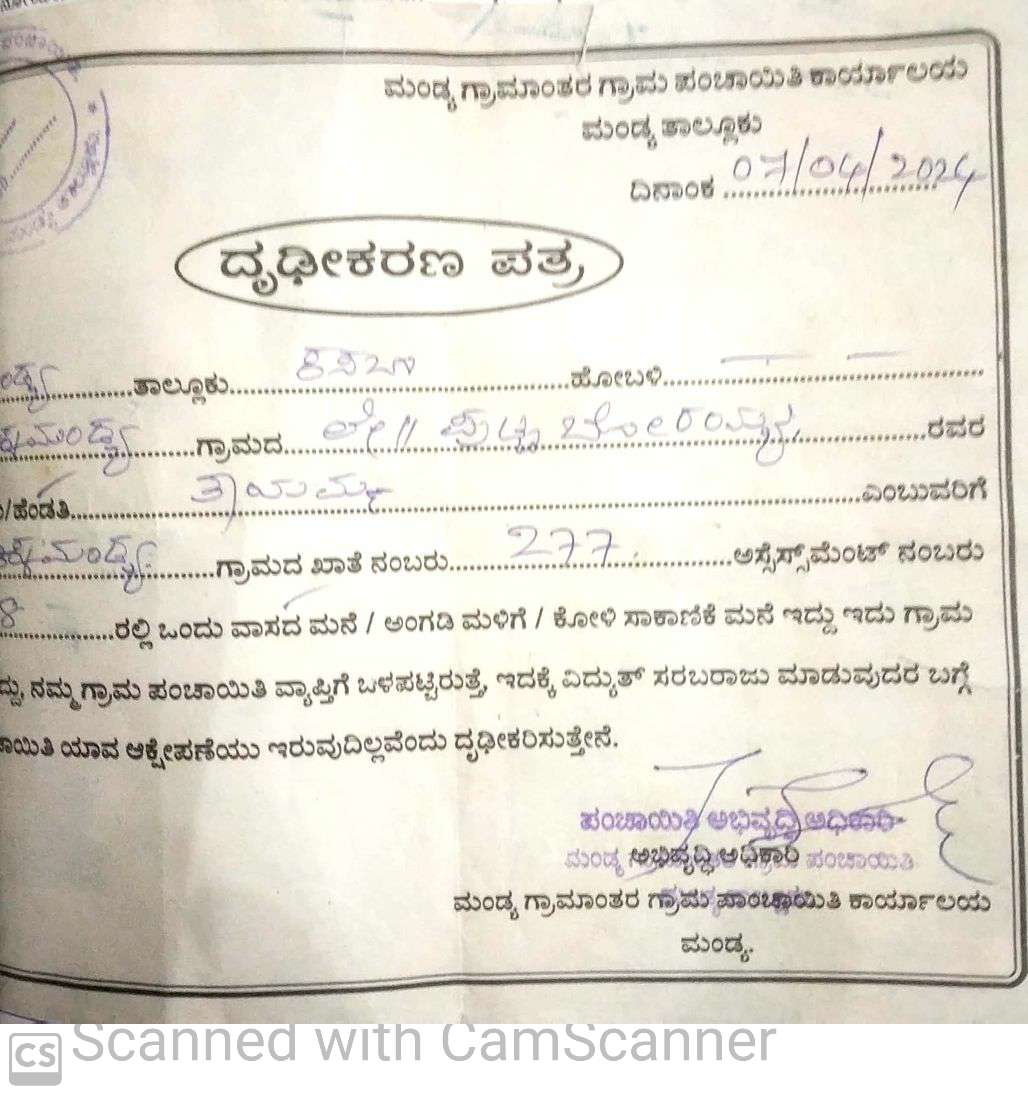 ಮಂಡ್ಯ ಗ್ರಾಮಾಂತರ ಗ್ರಾಮ ಪಂಚಾಯಿತಿ ಕಾರ್ಯಾಲಯ
ಮಂಡ್ಯ ತಾಲ್ಲೂಕು
ದಿನಾಂಕ 07/04/2024
ದೃಢೀಕರಣ ಪತ್ರ
ತಾಲ್ಲೂಕು ಕಸಬಾ ಹೋಬಳಿ
ಗ್ರಾಮದ ಲೇ|| ರವರ
/ಹೆಂಡತಿ ತಾಯಮ್ಮ ಎಂಬುವರಿಗೆ
ಗ್ರಾಮದ ಖಾತೆ ನಂಬರು 277 ಅಸ್ಸೆಸ್ಸ್‌ಮೆಂಟ್ ನಂಬರು
ರಲ್ಲಿ ಒಂದು ವಾಸದ ಮನೆ / ಅಂಗಡಿ ಮಳಿಗೆ / ಕೋಳಿ ಸಾಕಾಣಿಕೆ ಮನೆ ಇದ್ದು ಇದು ಗ್ರಾಮ
ನಮ್ಮ ಗ್ರಾಮ ಪಂಚಾಯಿತಿ ವ್ಯಾಪ್ತಿಗೆ ಒಳಪಟ್ಟಿರುತ್ತೆ, ಇದಕ್ಕೆ ವಿದ್ಯುತ್ ಸರಬರಾಜು ಮಾಡುವುದರ ಬಗ್ಗೆ
ಯಾವ ಆಕ್ಷೇಪಣೆಯು ಇರುವುದಿಲ್ಲವೆಂದು ದೃಢೀಕರಿಸುತ್ತೇನೆ.
ಪಂಚಾಯಿತಿ ಅಭಿವೃದ್ಧಿ ಅಧಿಕಾರಿ
ಅಭಿವೃದ್ಧಿ ಅಧಿಕಾರಿ
ಮಂಡ್ಯ ಪಂಚಾಯಿತಿ
ಮಂಡ್ಯ ಗ್ರಾಮಾಂತರ ಗ್ರಾಮ ಪಾಂಚಾಯಿತಿ ಕಾರ್ಯಾಲಯ
ಮಂಡ್ಯ.
CS Scanned with CamScanner